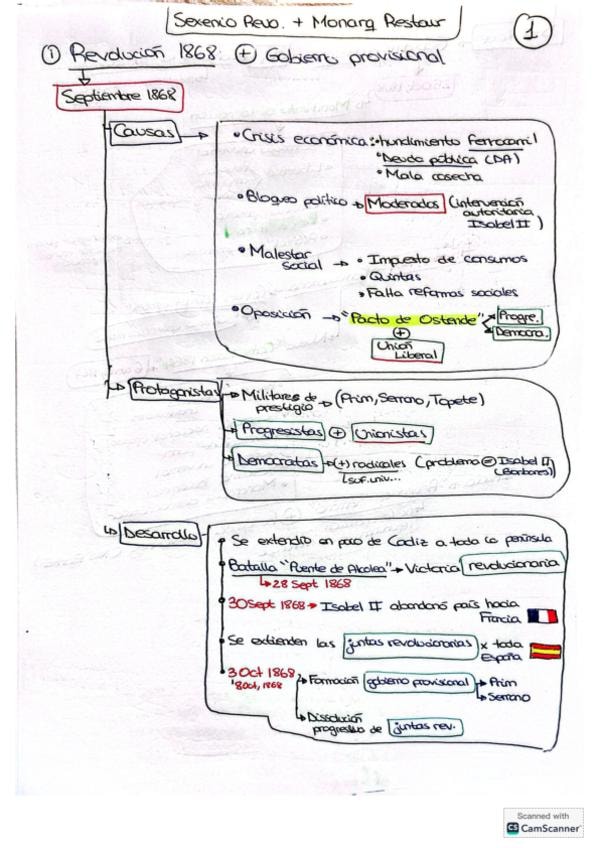 Sexenio Revo. + Monarq Restaur
1
① Revolución 1868: ⊕ Gobierno provisional
Septiembre 1868
Causas → • Crisis económica: • hundimiento ferrocarril
• Deuda pública (DA)
• Mala cosecha
• Bloqueo político → Moderados (intervención
autoritaria
Isabel II)
• Malestar
social → • Impuesto de consumos
• Quintas
• Falta reformas sociales
• Oposición → "Pacto de Ostende" Progre.
Democra.
⊕
Unión
Liberal
Protagonistas → Militares de
prestigio → (Prim, Serrano, Topete)
Progresistas ⊕ Unionistas
Democratas → (+) radicales (problema = Isabel II
(Borbones)
(suf. univ...
Desarrollo • Se extendió en poco de Cadiz a toda la península
• Batalla "Puente de Alcolea" → Victoria revolucionaria
↳ 28 Sept 1868
• 30 Sept 1868 → Isabel II abandonó país hacia
Francia
• Se extienden las juntas revolucionarias x toda
España
• 3 Oct 1868
8 Oct, 1868
→ Formación gobierno provisional → Prim
→ Serrano
→ Disolución
progresiva de juntas rev.
Scanned with
CS CamScanner